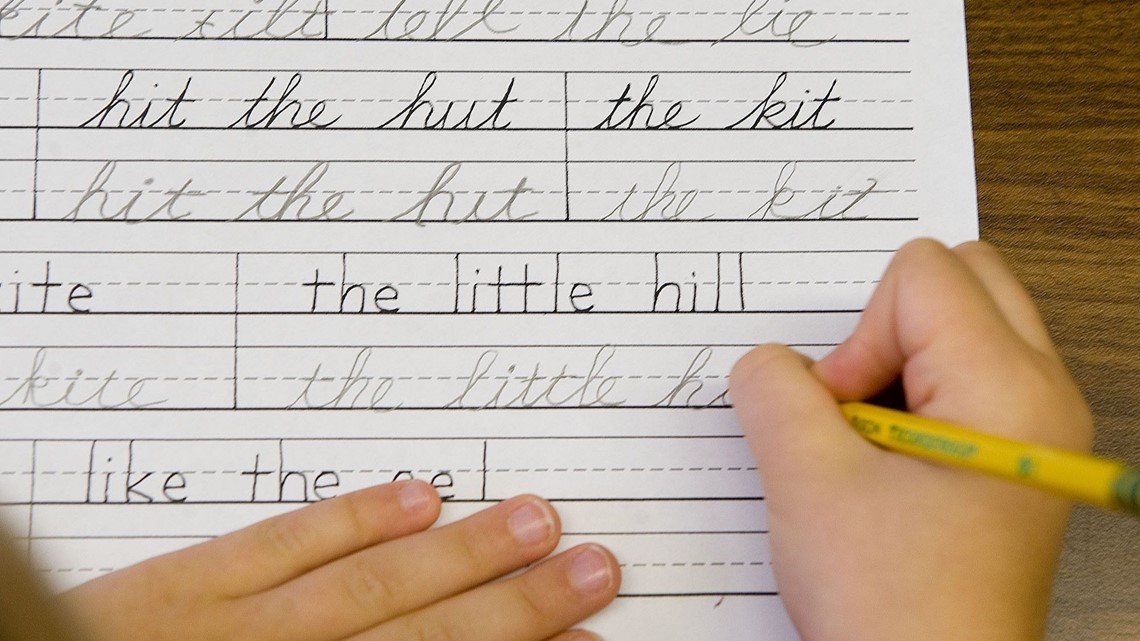 kite tilt tell the lie
hit the hut the kit
hit the hut the kit
ite the little hill
kite the little h
like the eel